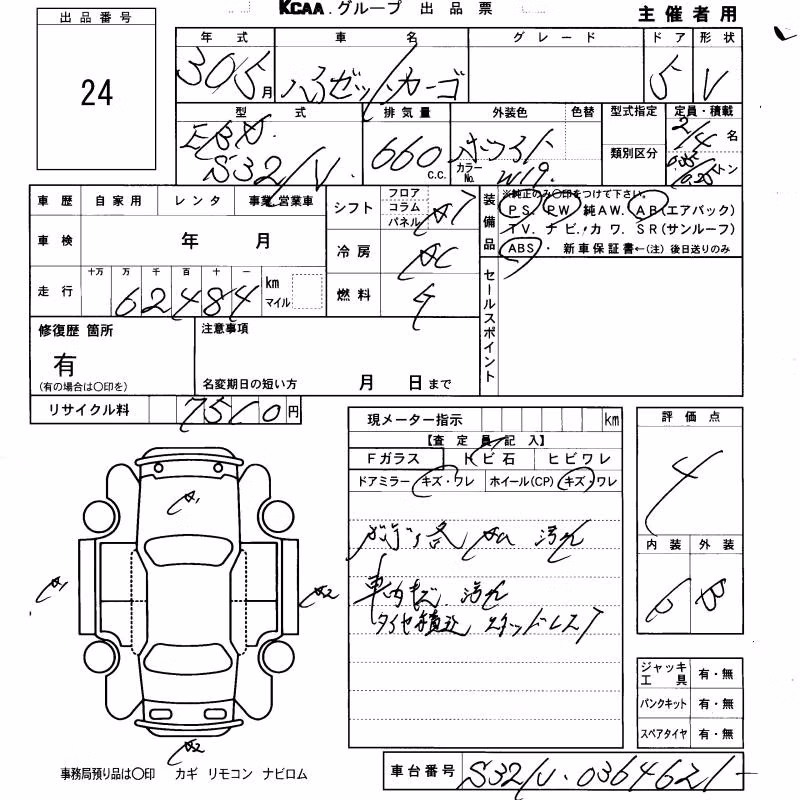 KCAA.グループ 出品票
主催者用
出品番号
24
年式 車名 グレード ドア 形状
30/5月 ハイゼットカーゴ 5 V
型式 排気量 外装色 色替 型式指定 定員・積載
EBD. 660 C.C. ホワイト 2/4名
S321V. カラーNo. W19. 類別区分 トン
車歴 自家用 レンタ 事業・営業車
車検 年 月
走行 十万 万 千 百 十 一
62484 km マイル
シフト フロア コラム パネル AT
冷房 AC
燃料 G
装備品
※純正のみ〇印をつけて下さい。
PS. PW 純AW. AB(エアバック)
TV. ナビ. カワ. SR(サンルーフ)
ABS・ 新車保証書←(注) 後日送りのみ
セールスポイント
修復歴 箇所
有
(有の場合は〇印を)
注意事項
名変期日の短い方 月 日まで
リサイクル料 7510円
現メーター指示 km
【査定員記入】
Fガラス トビ石 ヒビワレ
ドアミラー キズ・ワレ ホイール(CP) キズ・ワレ
汚れ
車内 汚れ
タイヤ積込
評価点
4
内装 外装
B
A1
A1
A2
A2
ジャッキ工具 有・無
パンクキット 有・無
スペアタイヤ 有・無
事務局預り品は〇印 カギ リモコン ナビロム
車台番号 S321V-0364621